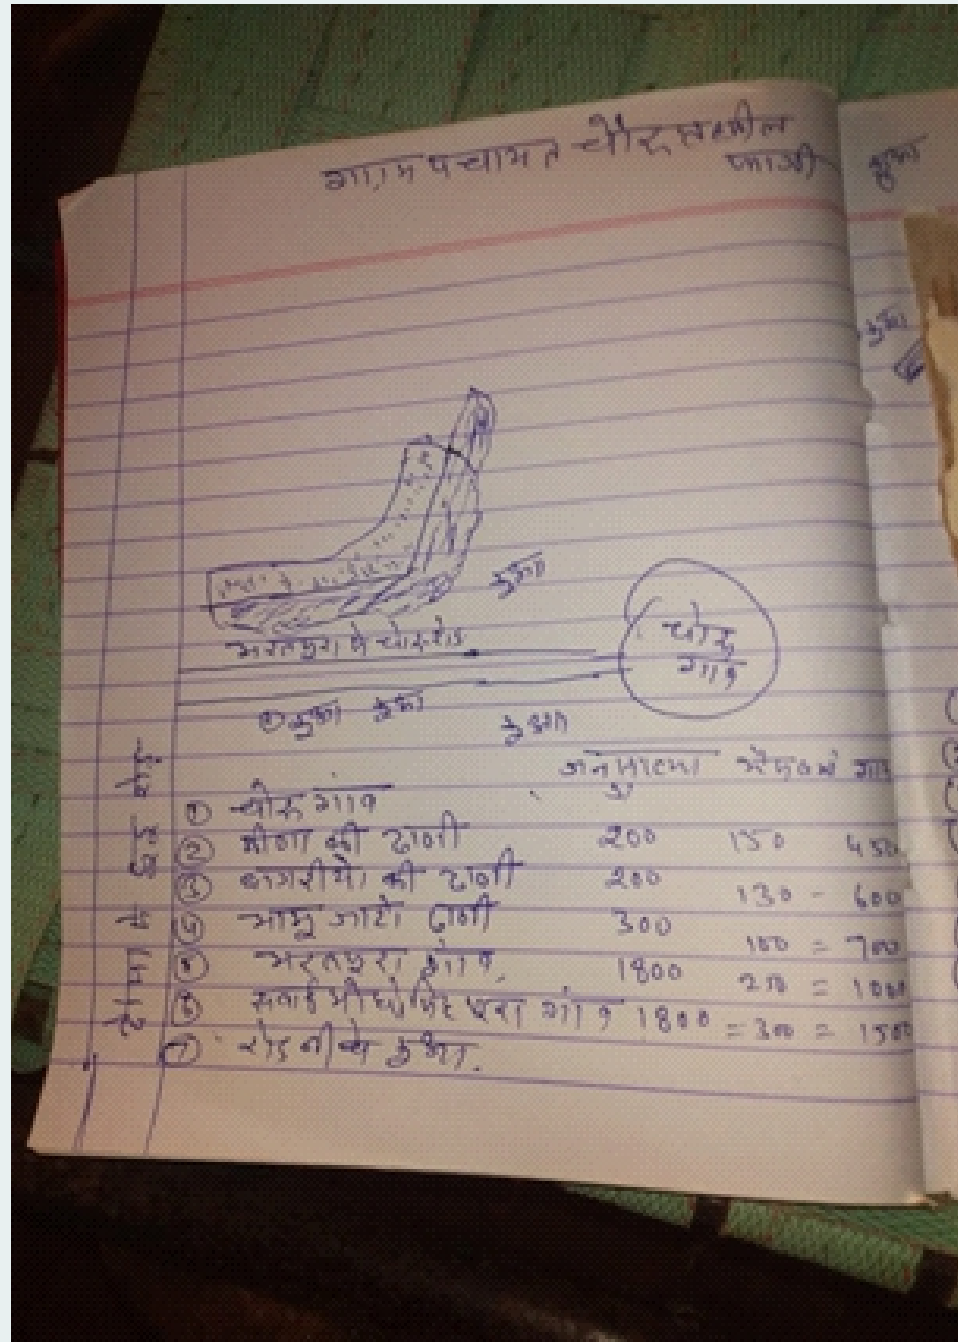 ग्राम पचायत चौरू तहसील
फागी
कुआ
कुआ
कुआ
भरतपुरा से चोरू रोड
चोरू
गाव
कुआ कुआ
कुआ
जनसंख्या भैस बकरी गाय
① चोरू गाव
② मीणा की ढाणी 200 150 450
③ बागरीयो की ढाणी 200 130 - 600
ढाणी 300 100 = 700
भरतपुरा गाव 1800 200 = 1000
सवाई माधोसिंह पुरा गांव 1800 = 300 = 1500
⑦ रोड नीचे कुआ.